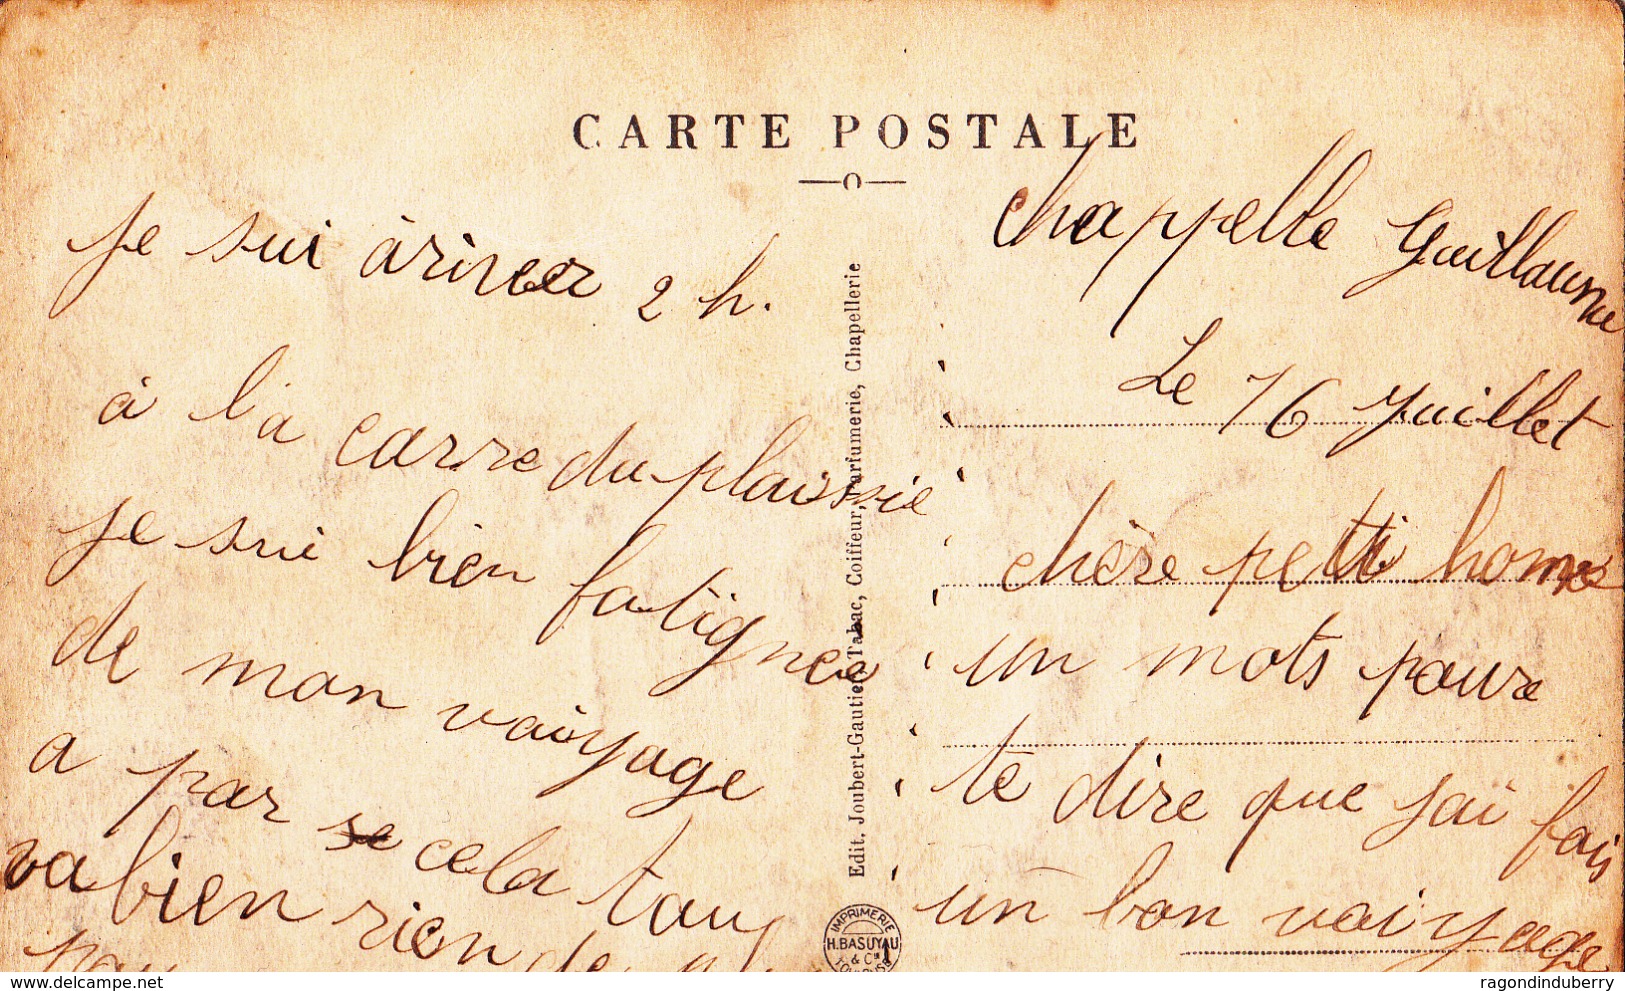 CARTE POSTALE
chappelle Guillaume
Le 16 Juillet
chère petti home
un mots poure
te dire que jai fais
un bon vaiyage
je sui àriveer 2 h.
à la carre du plaissie
je sui bien fatignee
de mon vaiyage
a par se cela tou
va bien rien de
Edit. Joubert-Gautier, Tabac, Coiffeur, Parfumerie, Chapellerie
IMPRIMERIE
H. BASUYAU
& Cie
TOULOUSE
delcampe.net
ragondinduberry